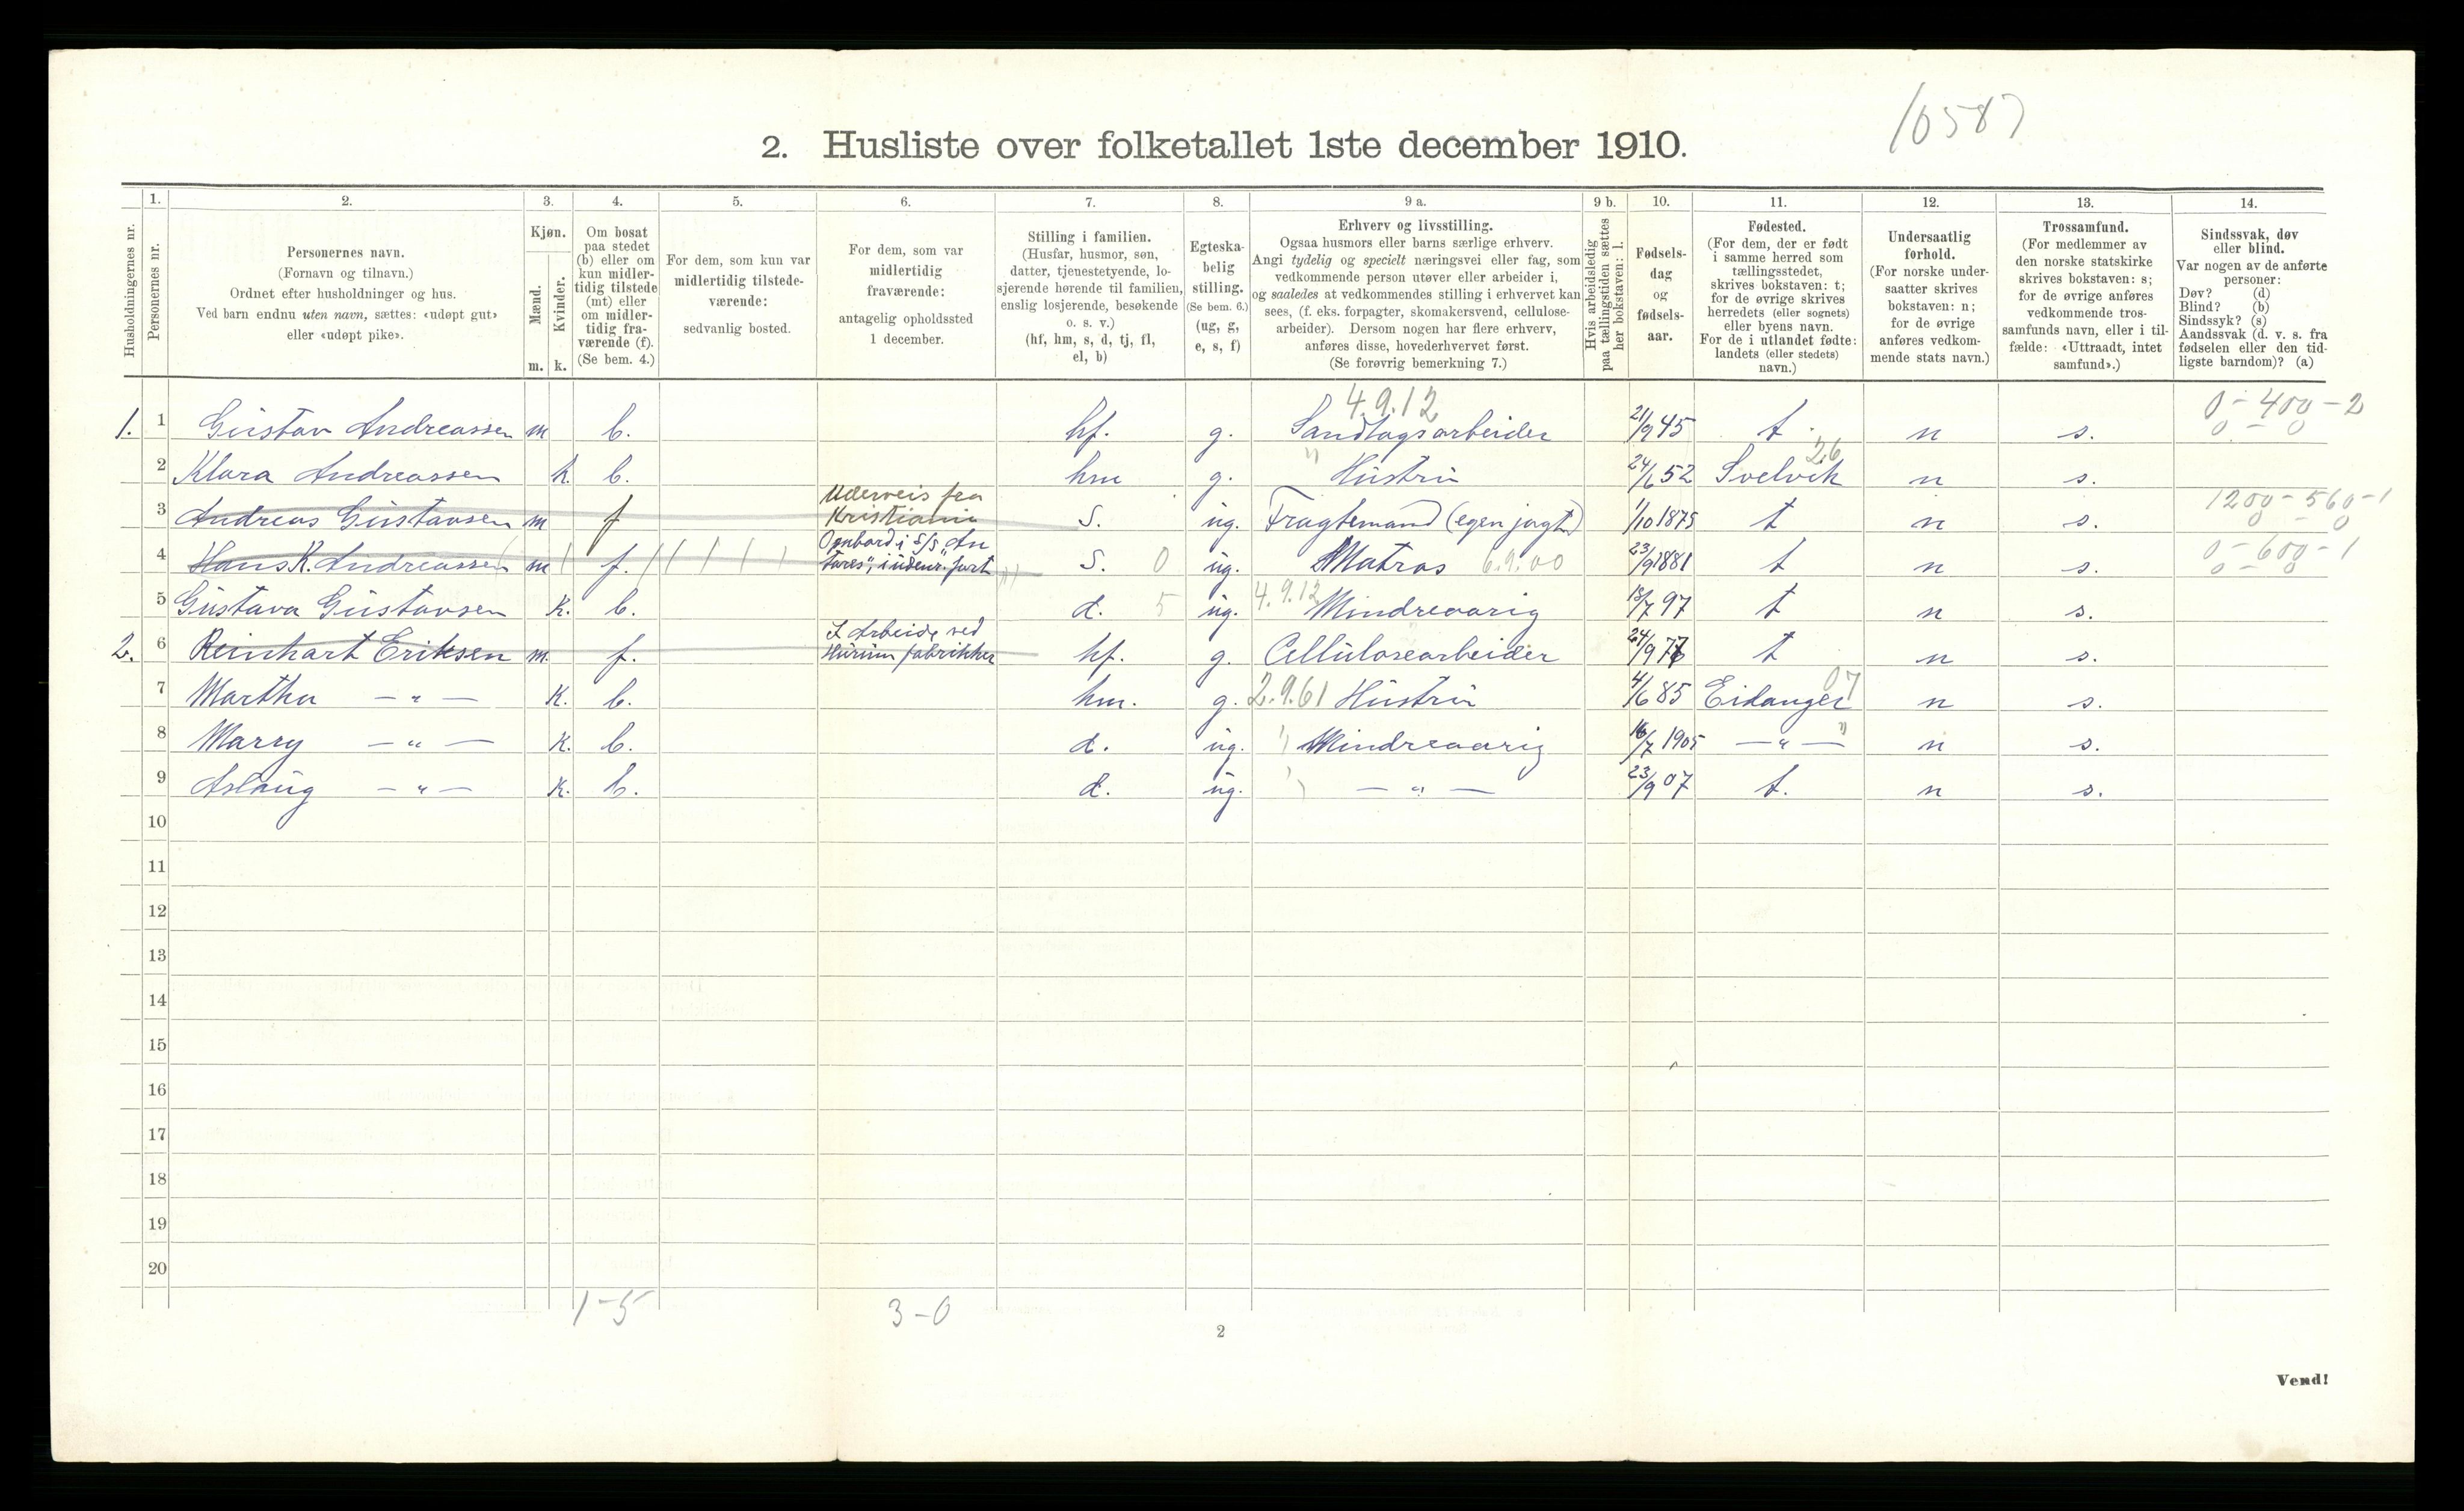 10587
2. Husliste over folketallet 1ste december 1910.
Husholdningernes nr.
1.
Personernes nr.
2.
Personernes navn.
(Fornavn og tilnavn.)
Ordnet efter husholdninger og hus.
Ved barn endnu uten navn, sættes: «udøpt gut»
eller «udøpt pike».
3.
Kjøn.
Mænd.
Kvinder.
m. k.
4.
Om bosat
paa stedet
(b) eller om
kun midler-
tidig tilstede
(mt) eller
om midler-
tidig fra-
værende (f).
(Se bem. 4.)
5.
For dem, som kun var
midlertidig tilstede-
værende:
sedvanlig bosted.
6.
For dem, som var
midlertidig
fraværende:
antagelig opholdssted
1 december.
7.
Stilling i familien.
(Husfar, husmor, søn,
datter, tjenestetyende, lo-
sjerende hørende til familien,
enslig losjerende, besøkende
o. s. v.)
(hf, hm, s, d, tj, fl,
el, b)
8.
Egteska-
belig
stilling.
(Se bem. 6.)
(ug, g,
e, s, f)
9 a.
Erhverv og livsstilling.
Ogsaa husmors eller barns særlige erhverv.
Angi tydelig og specielt næringsvei eller fag, som
vedkommende person utøver eller arbeider i,
og saaledes at vedkommendes stilling i erhvervet kan
sees, (f. eks. forpagter, skomakersvend, cellulose-
arbeider). Dersom nogen har flere erhverv,
anføres disse, hovederhvervet først.
(Se forøvrig bemerkning 7.)
9 b.
Hvis arbeidsledig
paa tællingstiden sættes
her bokstaven: l.
10.
Fødsels-
dag
og
fødsels-
aar.
11.
Fødested.
(For dem, der er født
i samme herred som
tællingsstedet,
skrives bokstaven: t;
for de øvrige skrives
herredets (eller sognets)
eller byens navn.
For de i utlandet fødte:
landets (eller stedets)
navn.)
12.
Undersaatlig
forhold.
(For norske under-
saatter skrives
bokstaven: n;
for de øvrige
anføres vedkom-
mende stats navn.)
13.
Trossamfund.
(For medlemmer av
den norske statskirke
skrives bokstaven: s;
for de øvrige anføres
vedkommende tros-
samfunds navn, eller i til-
fælde: «Uttraadt, intet
samfund».)
14.
Sindssvak, døv
eller blind.
Var nogen av de anførte
personer:
Døv? (d)
Blind? (b)
Sindssyk? (s)
Aandssvak (d. v. s. fra
fødselen eller den tid-
ligste barndom)? (a)
4.9.12 0-400-2
1. 1 Gustav Andreassen m b. hf. g. Sandtagsarbeider 21/9 45 t. n s. 0-0
2 Klara Andreassen k. b. hm g. " Hustru 24/6 52 Svelvik 26 n s.
Uderveis fra 1200-560-1
3 Andreas Gustavsen m f Kristiania S. ug. Fragtemand (egen jagt) 1/10 1875 t n s. 0-0
Ombord i S/S "An 0-600-1
4 Hans K. Andreassen m f. tares", i udenr. fart S. 0 ug. Matros 6.9.00 23/9 1881 t n s. 0-0
5 Gustava Gustavsen K. b. d. 5 ug. 4.9.12 Mindreaarig 18/7 97 t n s.
I Arbeide ved
2. 6 Reinhart Eriksen m. f. Hurum fabrikker hf. g. Cellulosearbeider 24/9 77 t n s.
7 Martha — " — K. b. hm. g. 2.9.61 Hustru 4/6 85 Eidanger 07 n s.
8 Marry — " — K. b. d. ug. " Mindreaarig 16/7 1905 — " — " n s.
9 Aslaug — " — K. b. d. ug. " — " — 23/9 07 t. n s.
10
11
12
13
14
15
16
17
18
19
20
1-5 3-0
2
Vend!